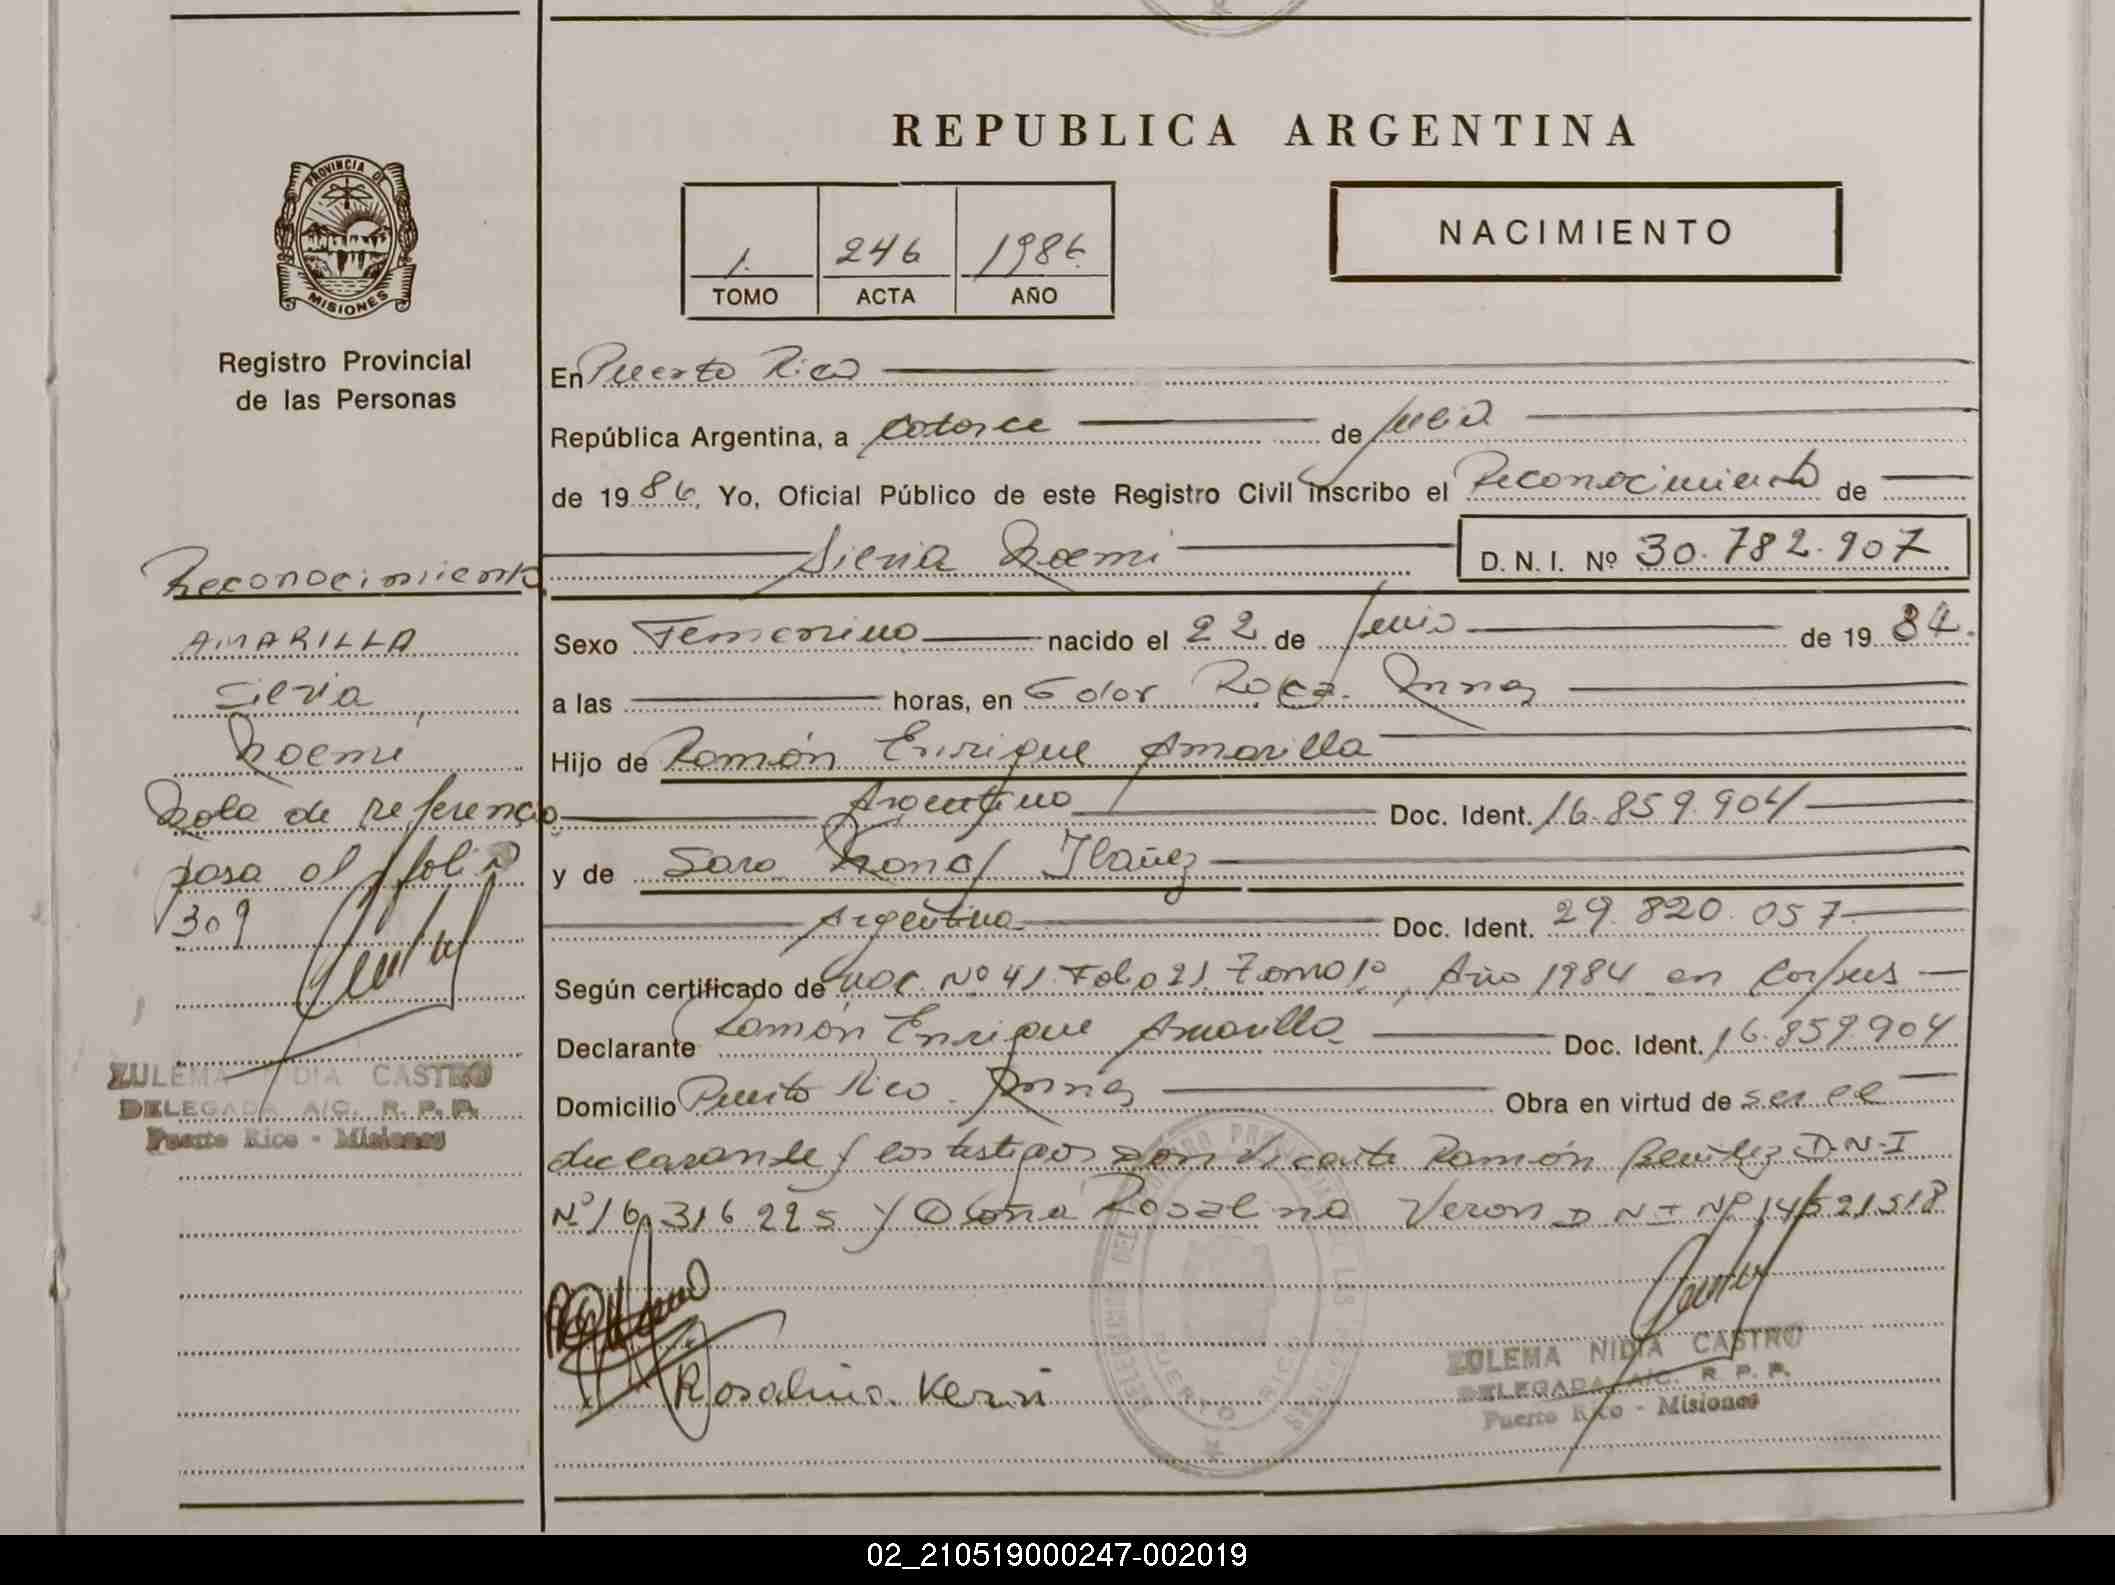 REPUBLICA ARGENTINA
PROVINCIA DE
MISIONES
Registro Provincial
de las Personas
1. 246 1986
TOMO ACTA AÑO
NACIMIENTO
En Puerto Rico
República Argentina, a catorce de julio
de 1986, Yo, Oficial Público de este Registro Civil inscribo el Reconocimiento de
Silvia Noemi D.N.I. Nº 30.782.907
Sexo Femenino nacido el 22 de junio de 1984.
a las horas, en Gdor Roca. Mnes
Hijo de Ramón Enrique Amarilla
Argentino Doc. Ident. 16.859.904
y de Sara Ibañez
Argentina Doc. Ident. 29.820.057
Según certificado de Nº 41 Folio 21 Tomo 1º, Año 1984 en Corpus
Declarante Ramón Enrique Amarilla Doc. Ident. 16.859.904
Domicilio Puerto Rico. Mnes Obra en virtud de ser el
declarante y los testigos Don Vicente Ramón Benitez D.N.I
Nº 16 316 225 y Doña Rosalina Veron D N I Nº 14521518
Rosalina
ZULEMA NIDIA CASTRO
DELEGADA A/C. R. P. P.
Puerto Rico - Misiones
PUERTO RICO
Reconocimiento
AMARILLA
Silvia
Noemi
Nota de referencia
pasa al folio
309
ZULEMA NIDIA CASTRO
DELEGADA A/C. R. P. P.
Puerto Rico - Misiones
02_210519000247-002019